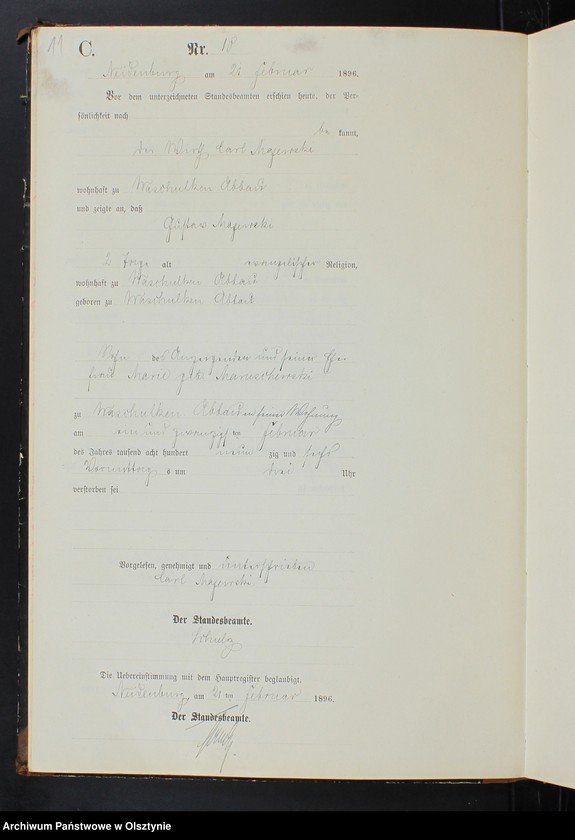 11
C. Nr. 10
Neidenburg am 21 Februar 1896.
Vor dem unterzeichneten Standesbeamten erschien heute, der Per-
sönlichkeit nach
be kannt,
der Wirth Carl Majewski
wohnhaft zu Waschulken Abbau
und zeigte an, daß
Gustav Majewski
2 Tage alt evangelischer Religion,
wohnhaft zu Waschulken Abbau
geboren zu Waschulken Abbau
Sohn des Anzeigenden und seiner Ehe-
frau Marie geb. Maruschewski
zu Waschulken Abbau in seiner Wohnung
am ein und zwanzig ten Februar
des Jahres tausend acht hundert neun zig und sechs
Vormittags um drei Uhr
verstorben sei
Vorgelesen, genehmigt und unterschrieben
Carl Majewski
Der Standesbeamte.
Schulz
Die Uebereinstimmung mit dem Hauptregister beglaubigt.
Neidenburg, am 21 ten Februar 1896.
Der Standesbeamte.
Schulz
Archiwum Państwowe w Olsztynie